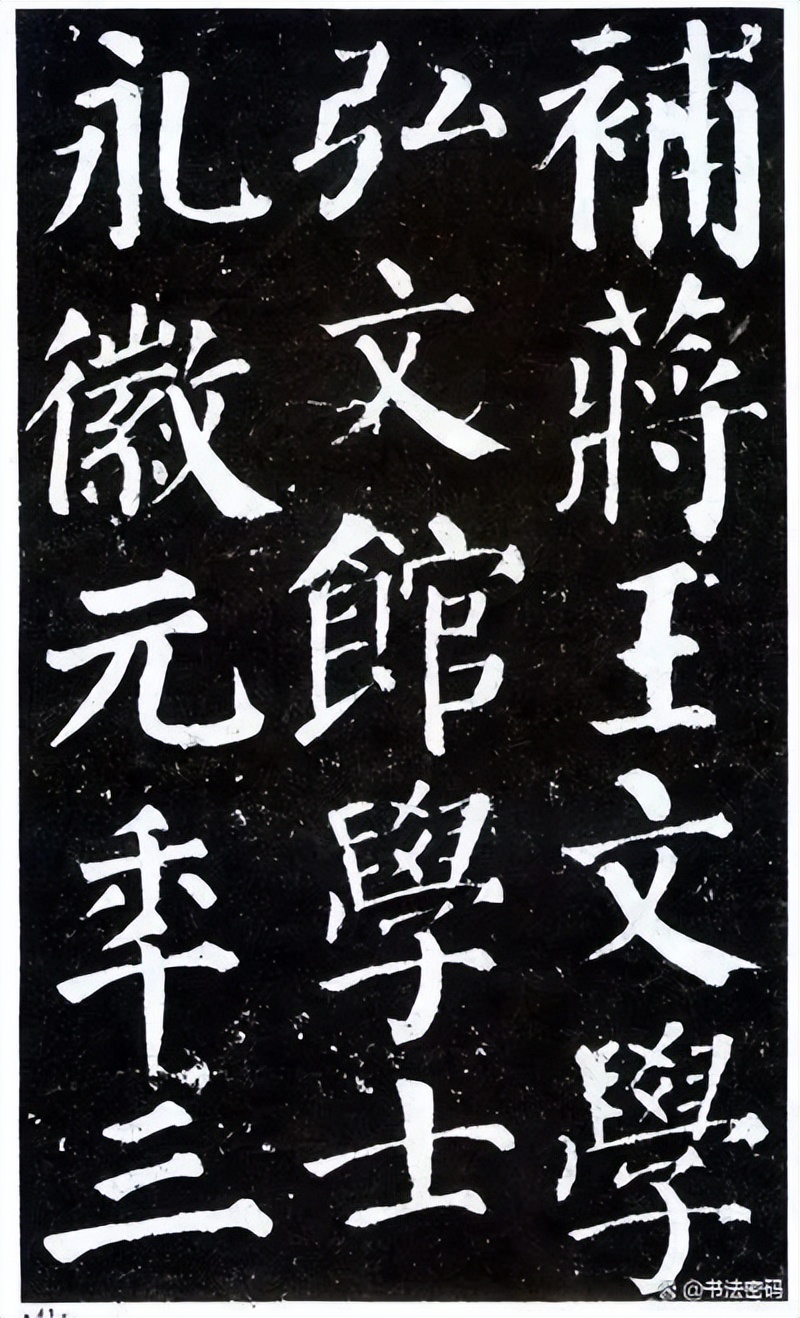 補蔣王文學
弘文館學士
永徽元年三
@书法密码